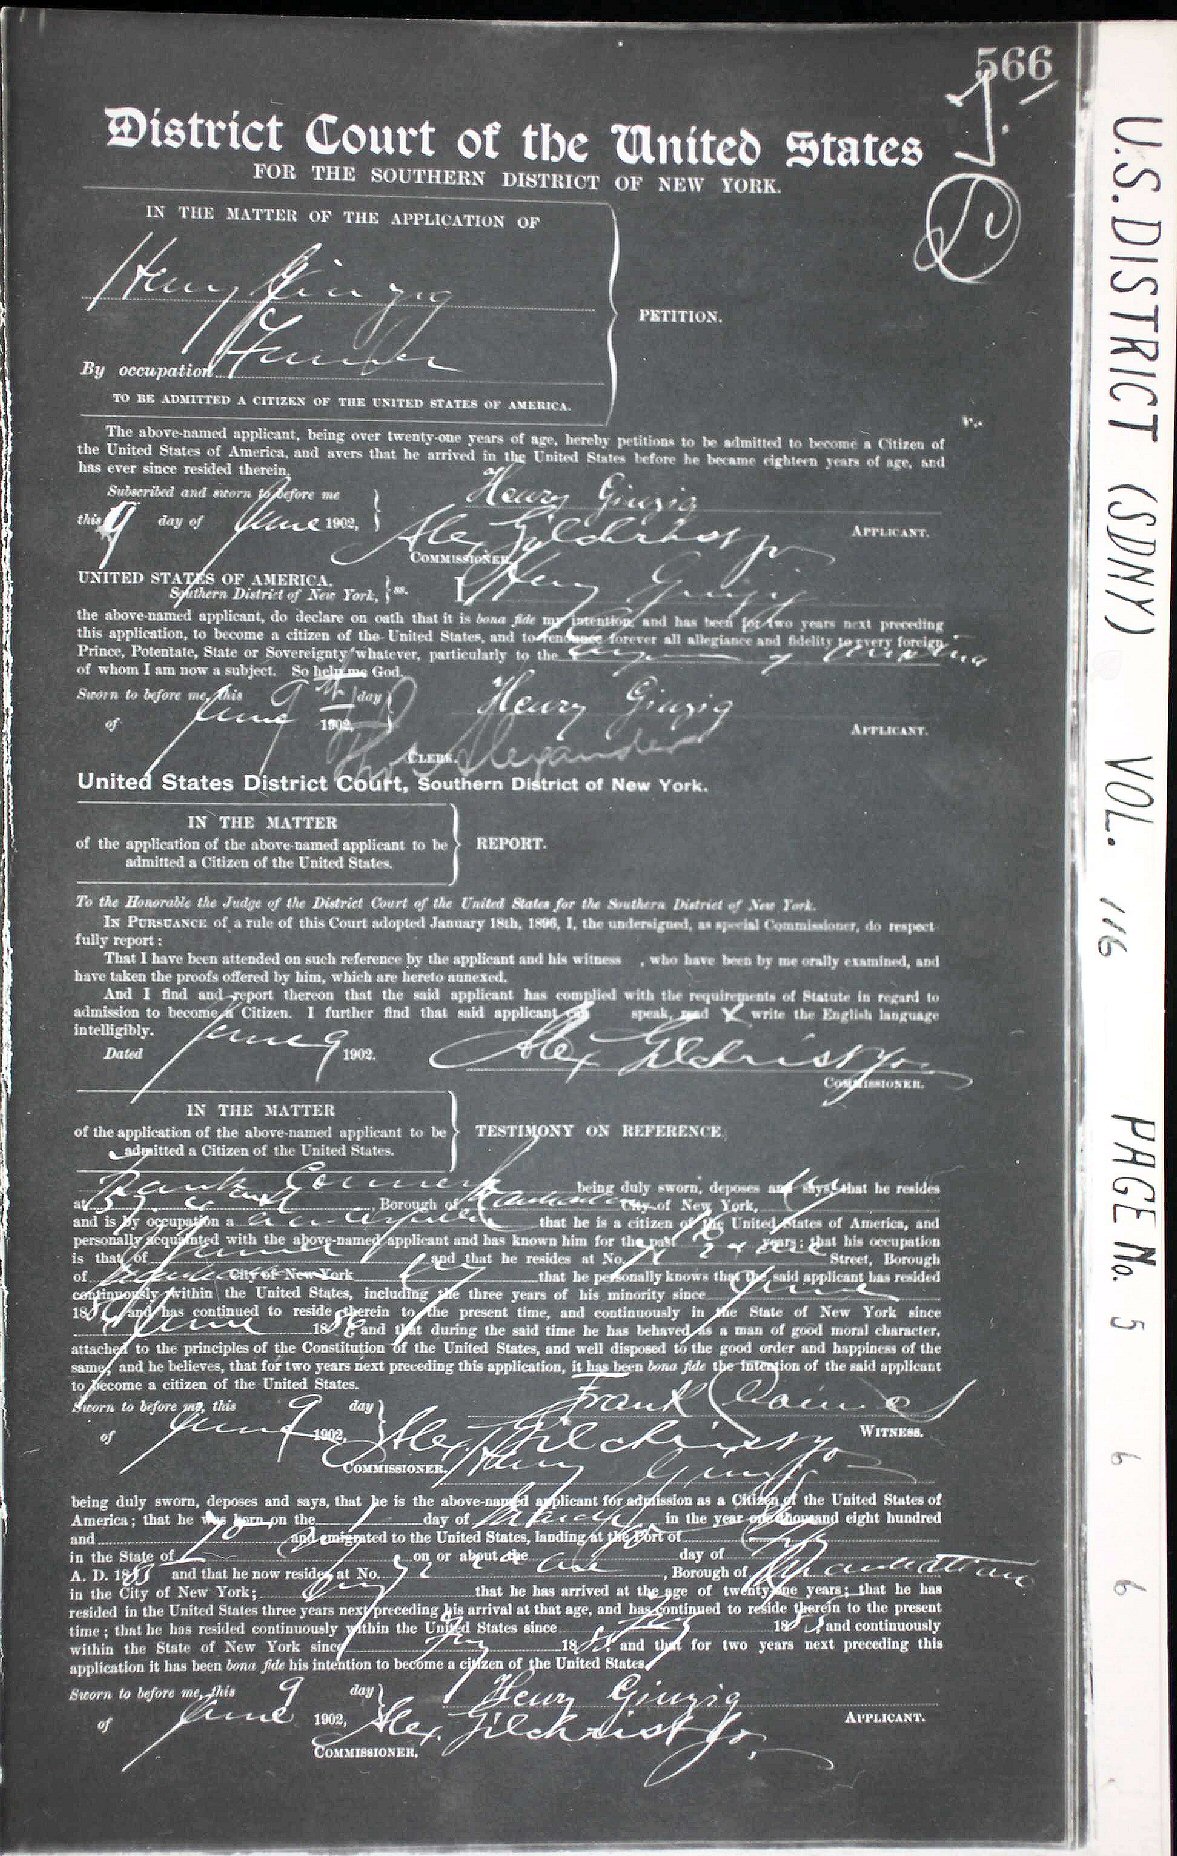 566
District Court of the United States
FOR THE SOUTHERN DISTRICT OF NEW YORK.
IN THE MATTER OF THE APPLICATION OF
Henry Ginzig
By occupation
TO BE ADMITTED A CITIZEN OF THE UNITED STATES OF AMERICA.
PETITION.
The above-named applicant, being over twenty-one years of age, hereby petitions to be admitted to become a Citizen of
the United States of America, and avers that he arrived in the United States before he became eighteen years of age, and
has ever since resided therein.
Subscribed and sworn to before me
this 9 day of June 1902,
Henry Ginzig
APPLICANT.
Alex Gilchrist Jr
COMMISSIONER.
UNITED STATES OF AMERICA,
Southern District of New York, ss.
I Henry Ginzig
the above-named applicant, do declare on oath that it is bona fide my intention, and has been for two years next preceding
this application, to become a citizen of the United States, and to renounce forever all allegiance and fidelity to every foreign
Prince, Potentate, State or Sovereignty whatever, particularly to the Emperor of Austria
of whom I am now a subject. So help me God.
Sworn to before me, this 9th day
of June 1902,
Henry Ginzig
APPLICANT.
Thos Alexander
CLERK.
United States District Court, Southern District of New York.
IN THE MATTER
of the application of the above-named applicant to be
admitted a Citizen of the United States.
REPORT.
To the Honorable the Judge of the District Court of the United States for the Southern District of New York.
IN PURSUANCE of a rule of this Court adopted January 18th, 1896, I, the undersigned, as special Commissioner, do respect
fully report:
That I have been attended on such reference by the applicant and his witness , who have been by me orally examined, and
have taken the proofs offered by him, which are hereto annexed.
And I find and report thereon that the said applicant has complied with the requirements of Statute in regard to
admission to become a Citizen. I further find that said applicant can speak, read & write the English language
intelligibly.
Dated June 9 1902.
Alex Gilchrist Jr
COMMISSIONER.
IN THE MATTER
of the application of the above-named applicant to be
admitted a Citizen of the United States.
TESTIMONY ON REFERENCE
Frank being duly sworn, deposes and says, that he resides
at Borough of Manhattan City of New York,
and is by occupation a that he is a citizen of the United States of America, and
personally acquainted with the above-named applicant and has known him for the past years; that his occupation
is that of and that he resides at No. Street, Borough
of Manhattan City of New York that he personally knows that the said applicant has resided
continuously within the United States, including the three years of his minority since June
18 and has continued to reside therein to the present time, and continuously in the State of New York since
June 18 and that during the said time he has behaved as a man of good moral character,
attached to the principles of the Constitution of the United States, and well disposed to the good order and happiness of the
same, and he believes, that for two years next preceding this application, it has been bona fide the intention of the said applicant
to become a citizen of the United States.
Sworn to before me, this 9 day
of June 1902,
Frank
WITNESS.
Alex. Gilchrist Jr
COMMISSIONER.
Henry Ginzig
being duly sworn, deposes and says, that he is the above-named applicant for admission as a Citizen of the United States of
America; that he was born on the day of in the year one thousand eight hundred
and 70 and emigrated to the United States, landing at the Port of
in the State of on or about the day of
A. D. 18 and that he now resides at No. , Borough of Manhattan
in the City of New York; that he has arrived at the age of twenty-one years; that he has
resided in the United States three years next preceding his arrival at that age, and has continued to reside therein to the present
time; that he has resided continuously within the United States since 18 and continuously
within the State of New York since 18 and that for two years next preceding this
application it has been bona fide his intention to become a citizen of the United States.
Sworn to before me, this 9 day
of June 1902,
Henry Ginzig
APPLICANT.
Alex. Gilchrist Jr.
COMMISSIONER.
U.S. DISTRICT (SDNY) VOL. 116 PAGE No. 566